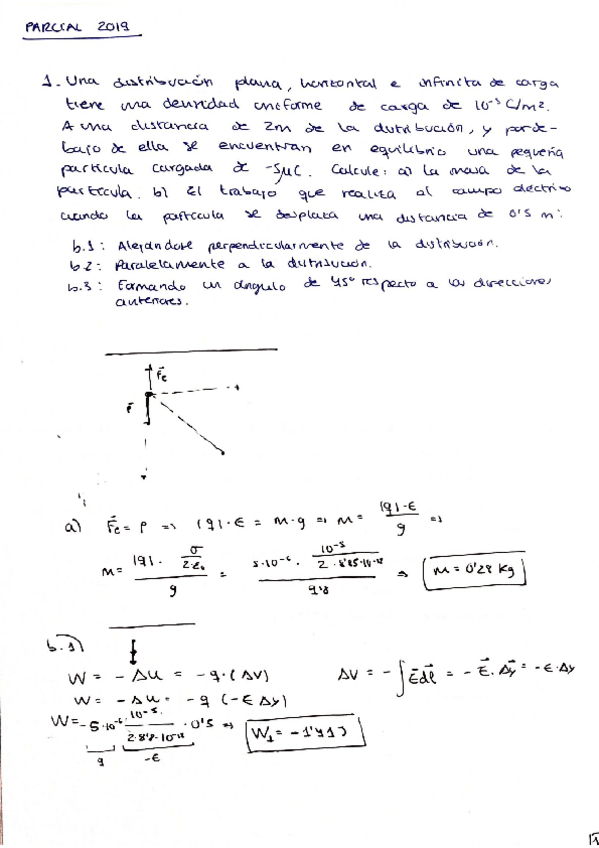 PARCIAL 2019
1. Una distribución plana, horizontal e infinita de carga
tiene una densidad uniforme de carga de 10⁻⁵ C/m².
A una distancia de 2m de la distribución, y por de-
bajo de ella se encuentran en equilibrio una pequeña
partícula cargada de -5μC. Calcule: a) la masa de la
partícula. b) El trabajo que realiza el campo eléctrico
cuando la partícula se desplaza una distancia de 0'5 m:
b.1: Alejándose perpendicularmente de la distribución.
b.2: Paralelamente a la distribución.
b.3: Formando un ángulo de 45° respecto a las direcciones
anteriores.
Fe
P
a) Fe = P => |q|·E = m·g => m = |q|·E / g =>
m = |q| · σ / 2·ε₀ / g = 5·10⁻⁶ · 10⁻⁵ / 2·8'85·10⁻¹² / 9'8 => m = 0'28 Kg
b.1)
W = - ΔU = - q·(ΔV) ΔV = - ∫ E dl = - E · Δy = - E·Δy
W = - ΔU = - q (-E Δy)
W = -5·10⁻⁶ · 10⁻⁵ / 2·8'8·10⁻¹² · 0'5 => W₁ = - 1'41 J
q -E